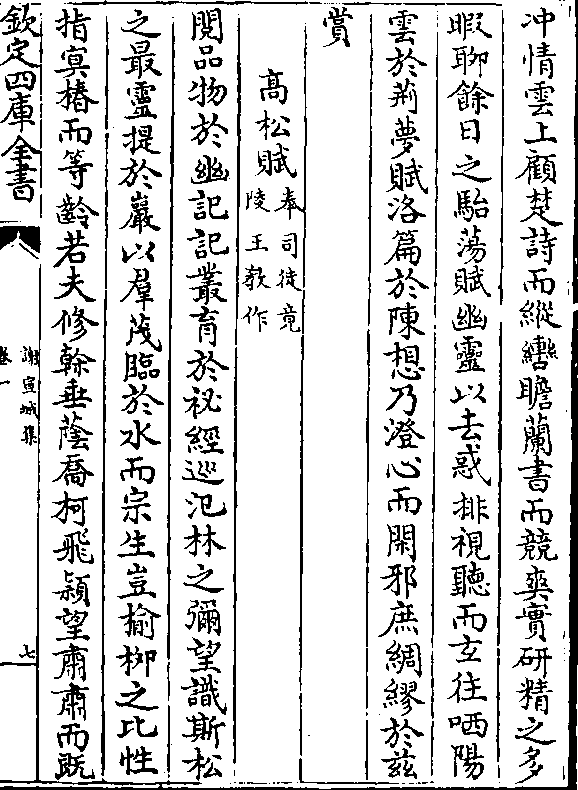 冲情雲上顧楚詩而縱轡瞻蘭書而競爽實研精之多
暇聊餘日之駘蕩賦幽靈以去惑排視聽而玄往哂陽
雲於荊夢賦洛篇於陳想乃澄心而閑邪庶綢繆於兹
賞
高松賦奉司徒竟
陵王教作
閱品物於幽記訪叢育於祕經巡汜林之彌望識斯松
之最靈提於巖以羣茂臨於水而宗生豈榆柳之比性
指冥椿而等齡若夫修幹垂蔭喬柯飛潁望肅肅而既
欽定四庫全書
謝宣城集
卷一
七